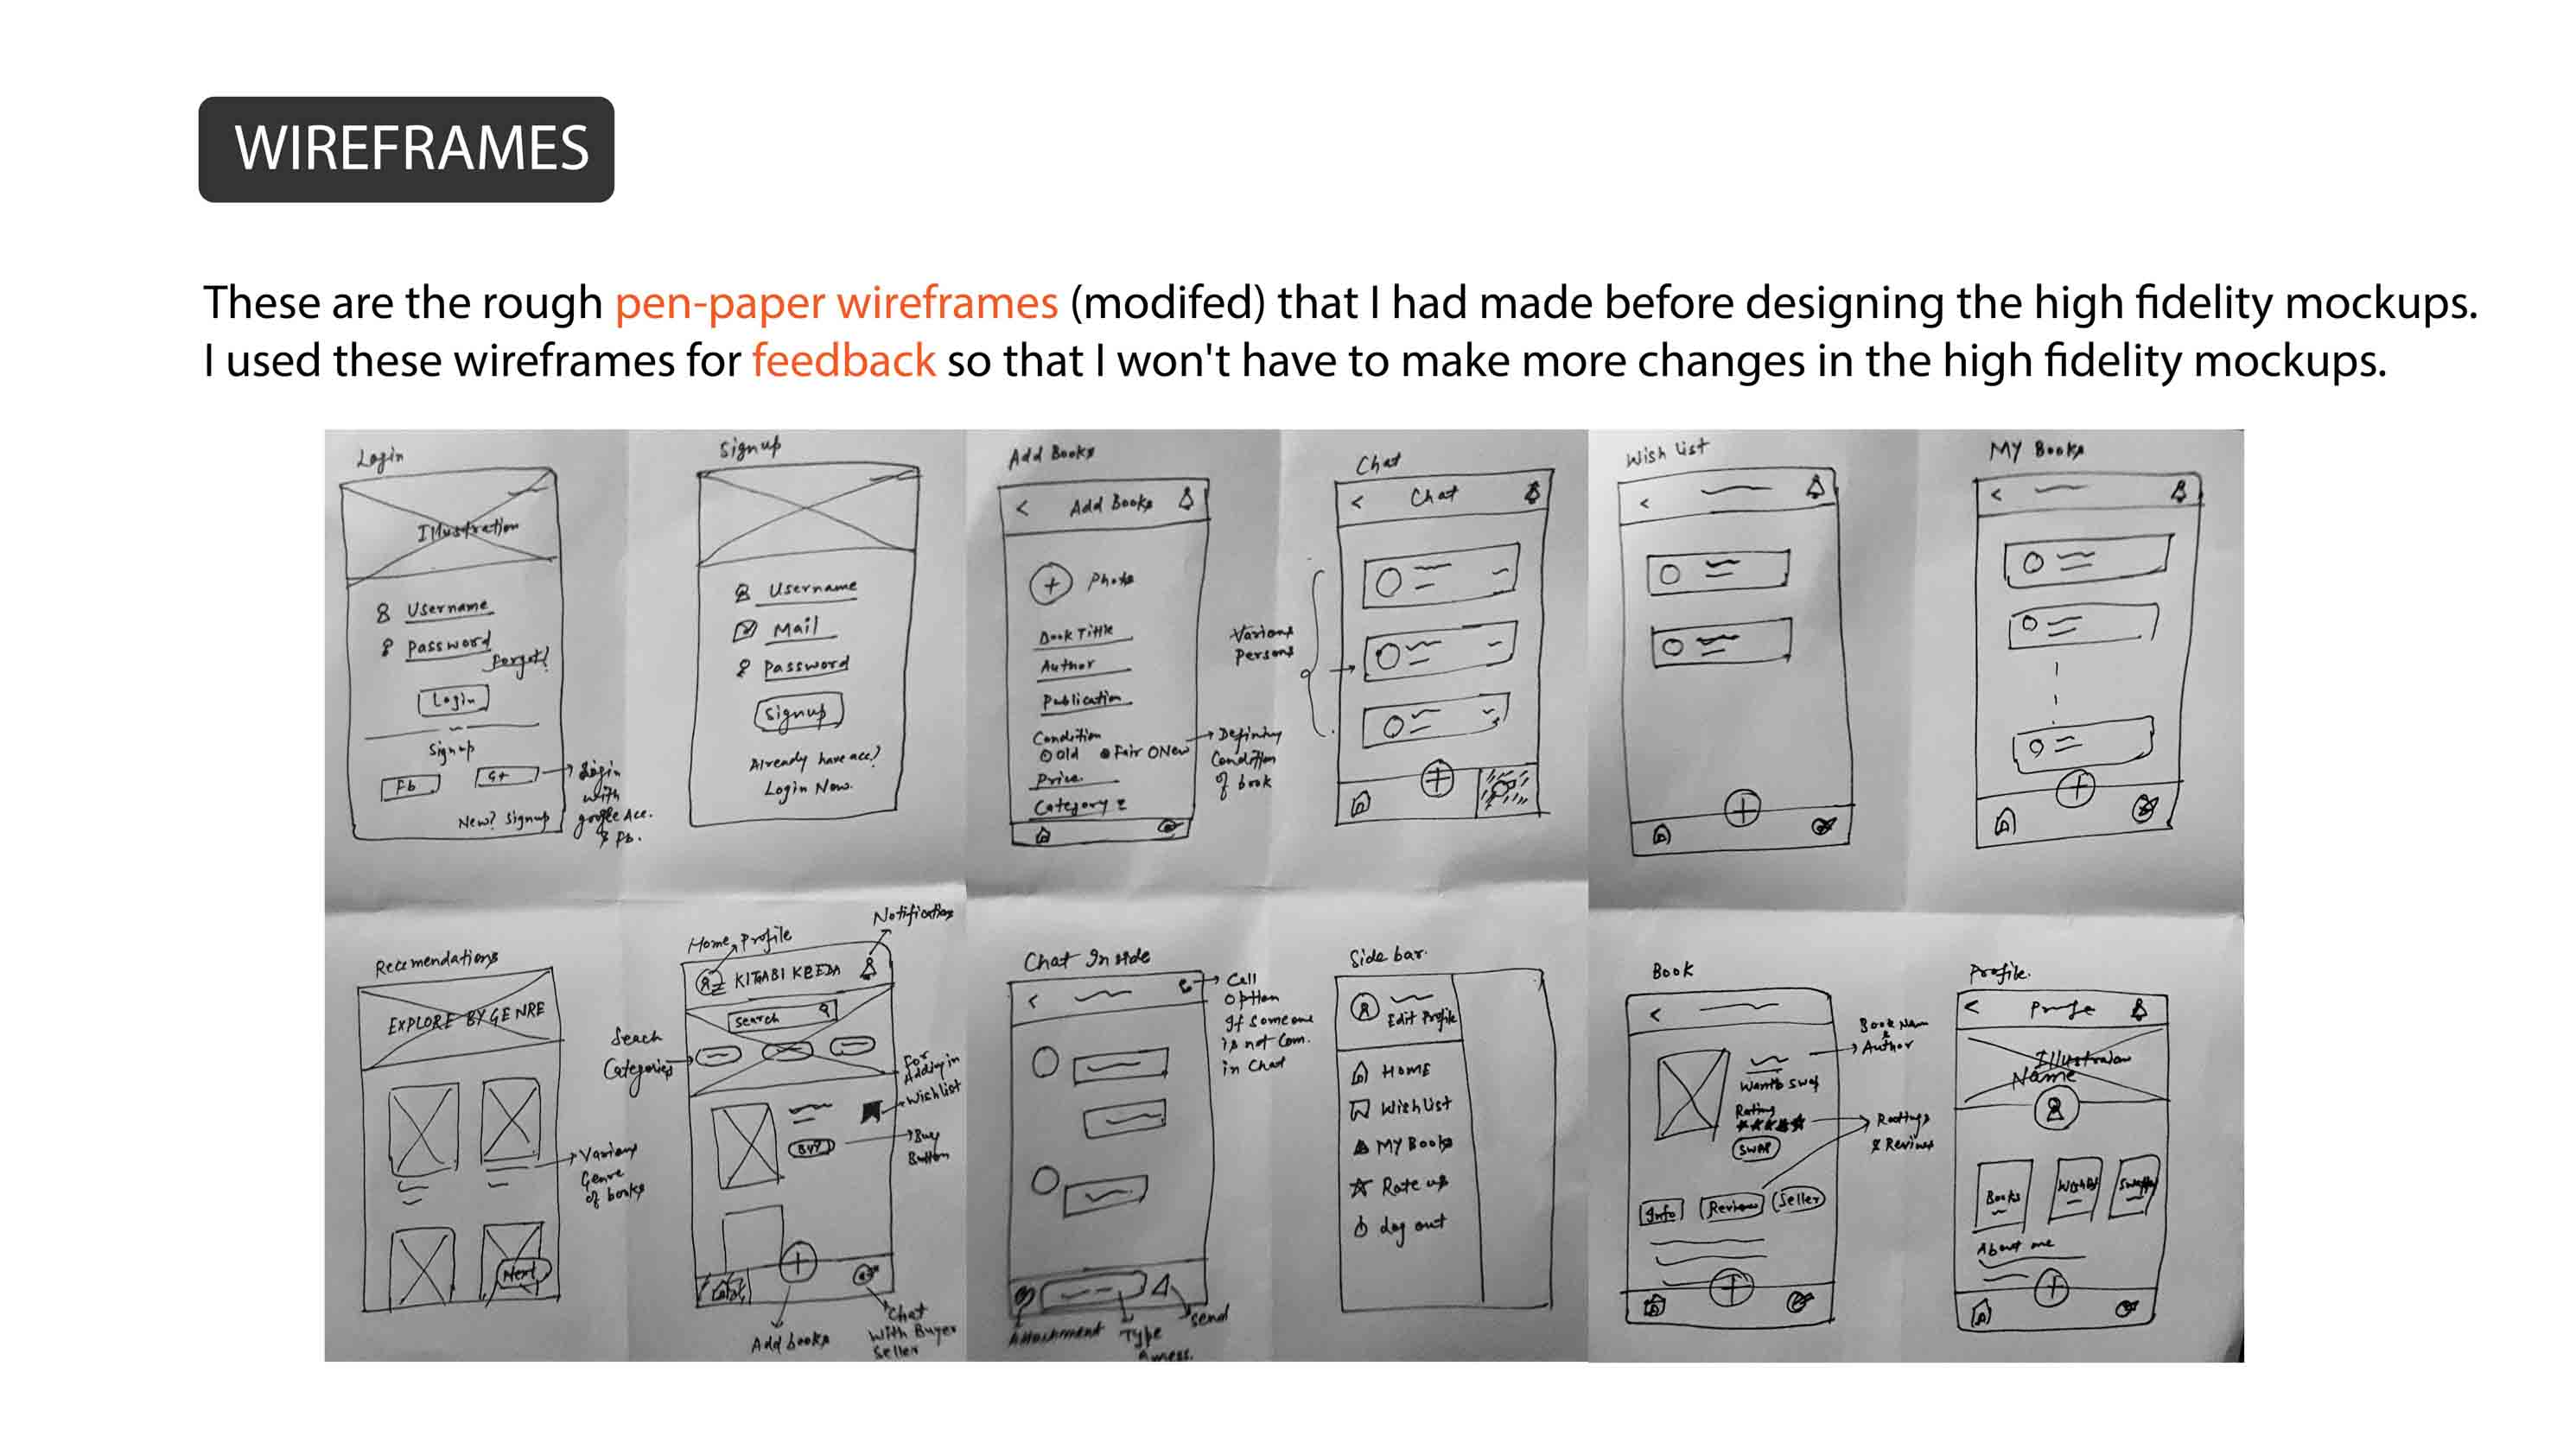 WIREFRAMES
These are the rough pen-paper wireframes (modifed) that I had made before designing the high fidelity mockups.
I used these wireframes for feedback so that I won't have to make more changes in the high fidelity mockups.
Login
Illustration
Username
Password
Forgot?
Login
Signup
Fb
G+
Login
with
google Acc.
& Fb.
New? Signup
Signup
Username
Mail
Password
Signup
Already have acc?
Login Now.
Add Books
< Add Books
+ Photo
Book Tittle
Author
Publication
Condition
Old Fair New
Price
Category
Defining
Condition
of book
Chat
< Chat
Various
Persons
+
Wish List
<
+
My Books
<
+
Recemendations
EXPLORE BY GENRE
Various
Genre
of books
Next
Home, Profile
Notification
KITABI KEEDA
Search
Seach
Categories
For
Adding in
Wishlist
BUY
Buy
Button
+
Add books
Chat
With Buyer
Seller
Chat Inside
<
Call
option
If someone
is not com.
in Chat
Attachment
Type
a mess.
Send
Side bar.
Edit Profile
HOME
Wishlist
MY Books
Rate us
Log out
Book
<
Book Nam
&
Author
Wants swap
Rating
SWAP
Raatings
& Reviews
Info
Reviews
Seller
+
Profile.
<
Illustration
Name
Books
Wishlist
About me
+